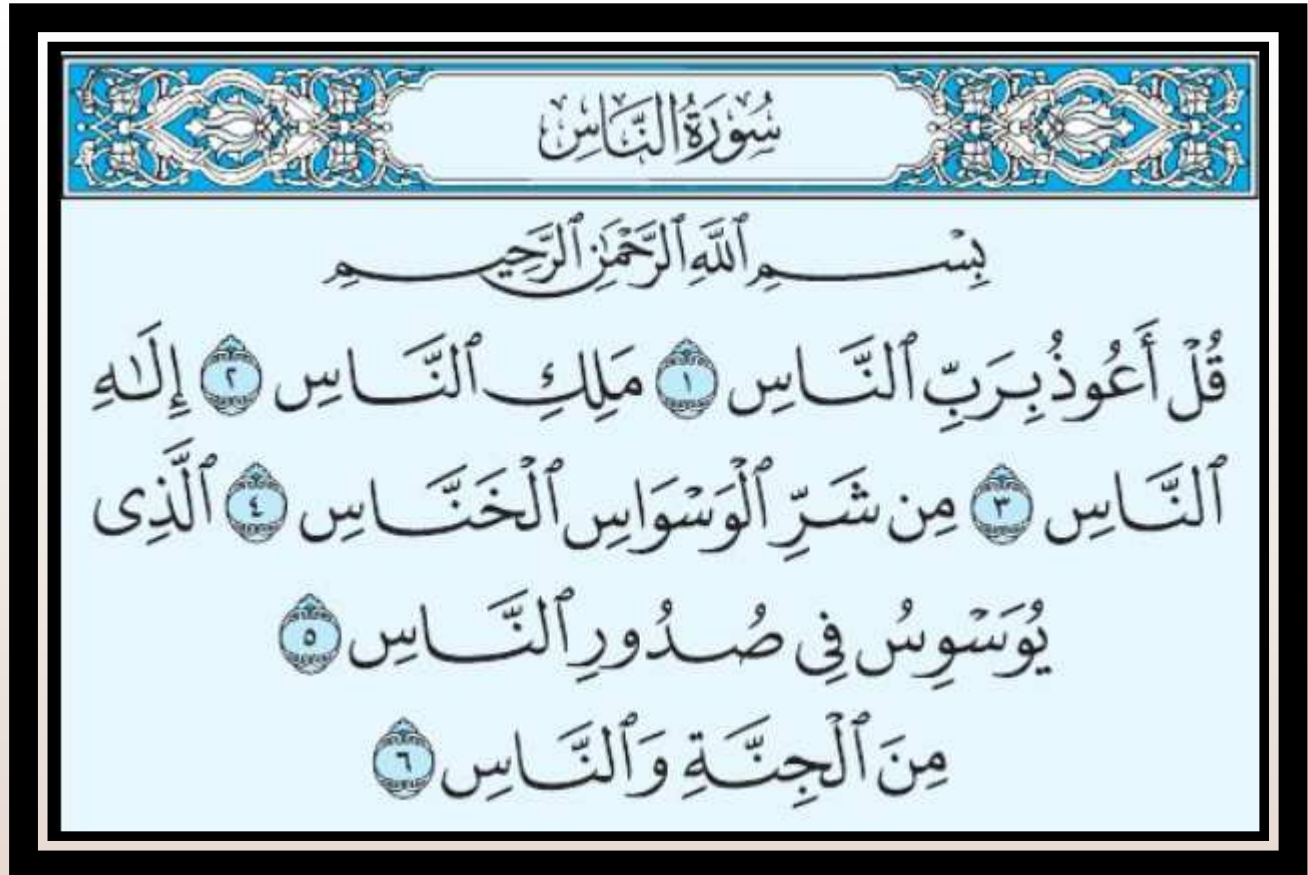 سُورَةُ النَّاسِ
بِسْمِ ٱللَّهِ ٱلرَّحْمَٰنِ ٱلرَّحِيمِ
قُلْ أَعُوذُ بِرَبِّ ٱلنَّاسِ ١ مَلِكِ ٱلنَّاسِ ٢ إِلَٰهِ
ٱلنَّاسِ ٣ مِن شَرِّ ٱلْوَسْوَاسِ ٱلْخَنَّاسِ ٤ ٱلَّذِى
يُوَسْوِسُ فِى صُدُورِ ٱلنَّاسِ ٥
مِنَ ٱلْجِنَّةِ وَٱلنَّاسِ ٦